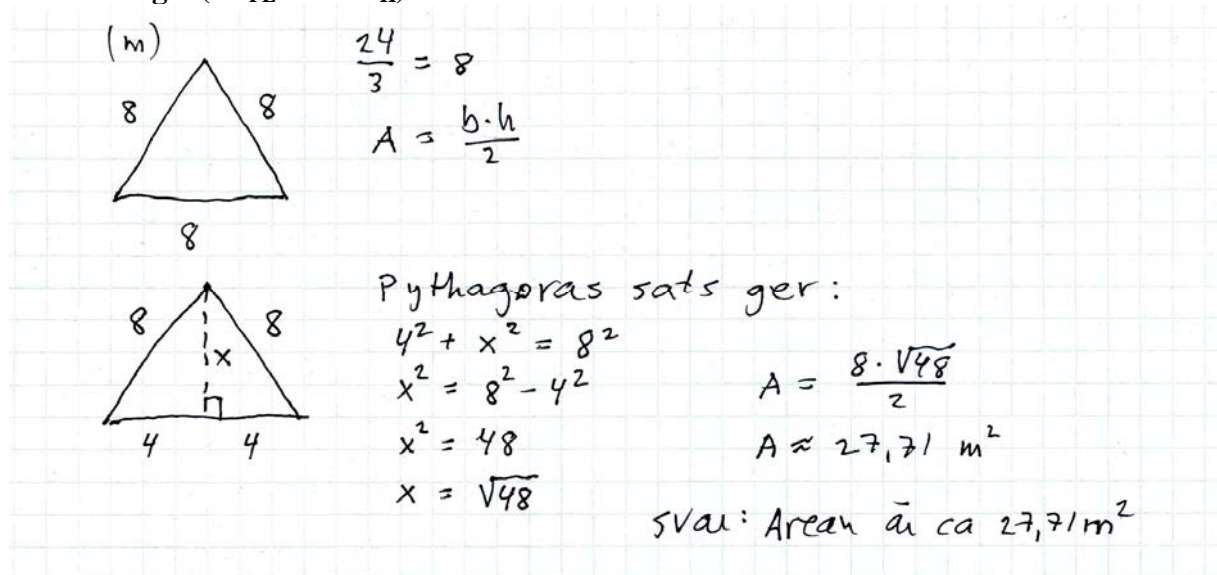 (m)
8
8
8
24/3 = 8
A = b·h/2
8
8
x
4
4
Pythagoras sats ger:
4² + x² = 8²
x² = 8² - 4²
x² = 48
x = √48
A = 8·√48/2
A ≈ 27,71 m²
svar: Arean är ca 27,71 m²